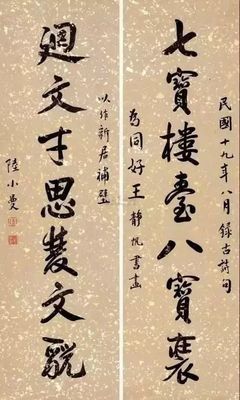 民國十九年八月錄古詩句
七寶樓臺八寶
為同好王靜書畫
以作新居補壁
迴文才思文
陸小曼